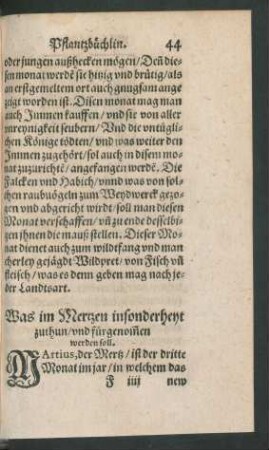 Pflantzbüchlin. 44
oder jungen außhecken mögen/Deñ die-
sen monat werdē sie hitzig vnd brütig/als
an erstgemeltem ort auch gnugsam ange
zeigt worden ist. Disen monat mag man
auch Immen kauffen/vnd sie von aller
vnreynigkeit seubern/Vnd die vntüglic-
hen Könige tödten/vnd was weiter den
Immen zugehört/sol auch in disem mo-
nat zuzurichtē/angefangen werdē. Die
Falcken vnd Habich/vnnd was von sol-
chen raubuögeln zum Weydwerck gezo-
gen vnd abgericht wirdt/soll man diesen
Monat verschaffen/vñ zu ende desselbi-
gen ihnen die mauß stellen. Dieser Mo-
nat dienet auch zum wildfang vnd man
cherley gejägdt Wildpret/von Fisch vñ
fleisch/was es denn geben mag nach je-
der Landtsart.
Was im Mertzen insonderheyt
zuthun/vnd fürgenom̃en
werden soll.
MArtius, der Mertz/ist der dritte
Monat im jar/in welchem das
F iiij new